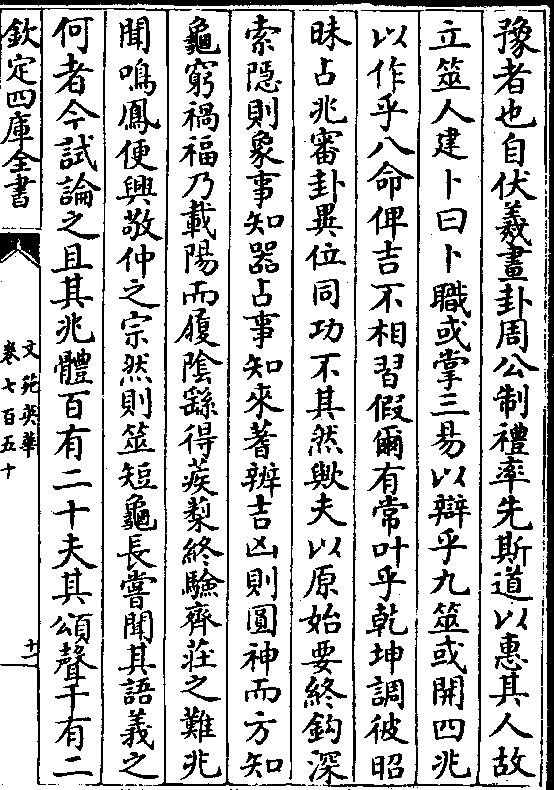 豫者也自伏羲畫卦周公制禮率先斯道以惠其人故
立筮人建卜曰卜職或掌三易以辯乎九筮或開四兆
以作乎八命俾吉不相習假爾有常叶乎乾坤調彼昭
昧占兆審卦異位同功不其然歟夫以原始要終鈎深
索隱則象事知器占事知來蓍辨吉凶則圓神而方知
龜窮禍福乃載陽而履陰繇得蒺蔾終驗齊莊之難兆
聞鳴鳳便興敬仲之宗然則筮短龜長嘗聞其語義之
何者今試論之且其兆體百有二十夫其頌聲千有二
欽定四庫全書
文苑英華
卷七百五十
十一